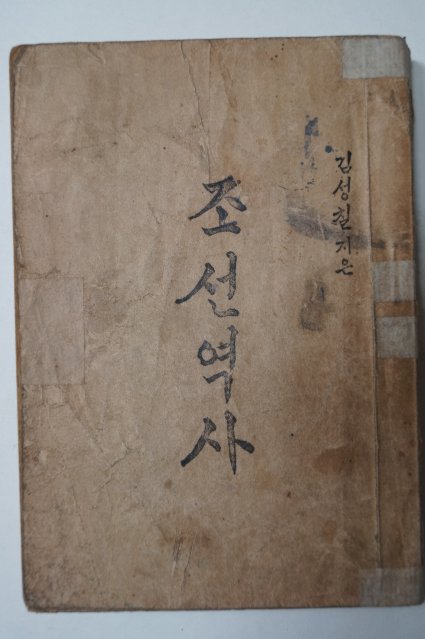 김성칠 지은
조선역사